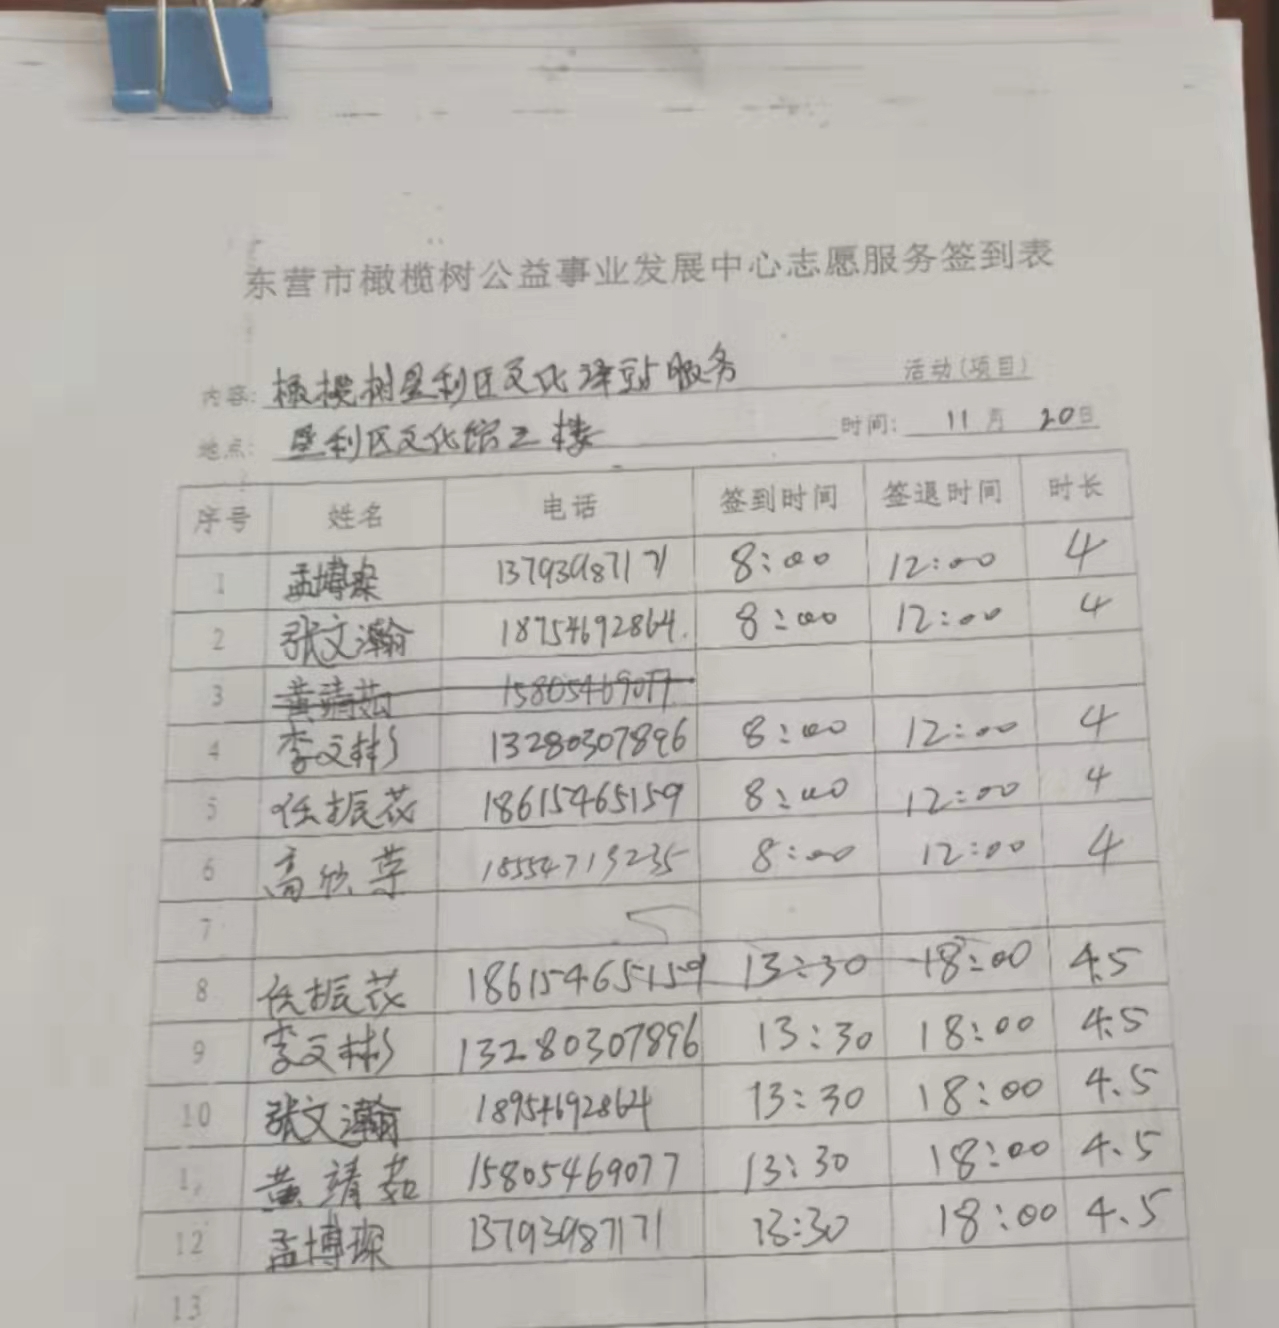 东营市橄榄树公益事业发展中心志愿服务签到表
内容: 橄榄树垦利区文化驿站服务 活动(项目)
地点: 垦利区文化馆三楼 时间: 11月20日
序号 姓名 电话 签到时间 签退时间 时长
1 孟博琛 13793987171 8:00 12:00 4
2 张文瀚 18754692864 8:00 12:00 4
3 黄靖茹 15805469077
4 李文彬 13280307896 8:00 12:00 4
5 任振花 18615465159 8:00 12:00 4
6 高欣 18554719235 8:00 12:00 4
7
8 任振花 18615465159 13:30 18:00 4.5
9 李文彬 13280307896 13:30 18:00 4.5
10 张文瀚 18954692864 13:30 18:00 4.5
1 黄靖茹 15805469077 13:30 18:00 4.5
12 孟博琛 13793987171 13:30 18:00 4.5
13